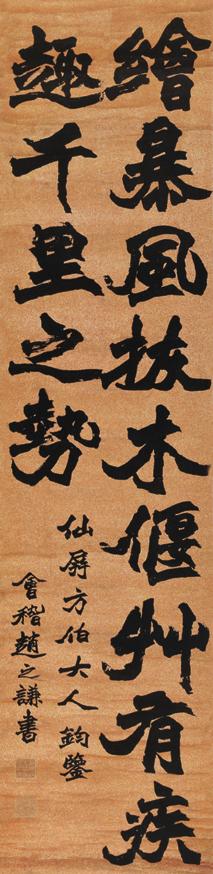 繪暴風拔木偃艸有疾
趣千里之勢
仙屏方伯大人鈞鑒
會稽趙之謙書